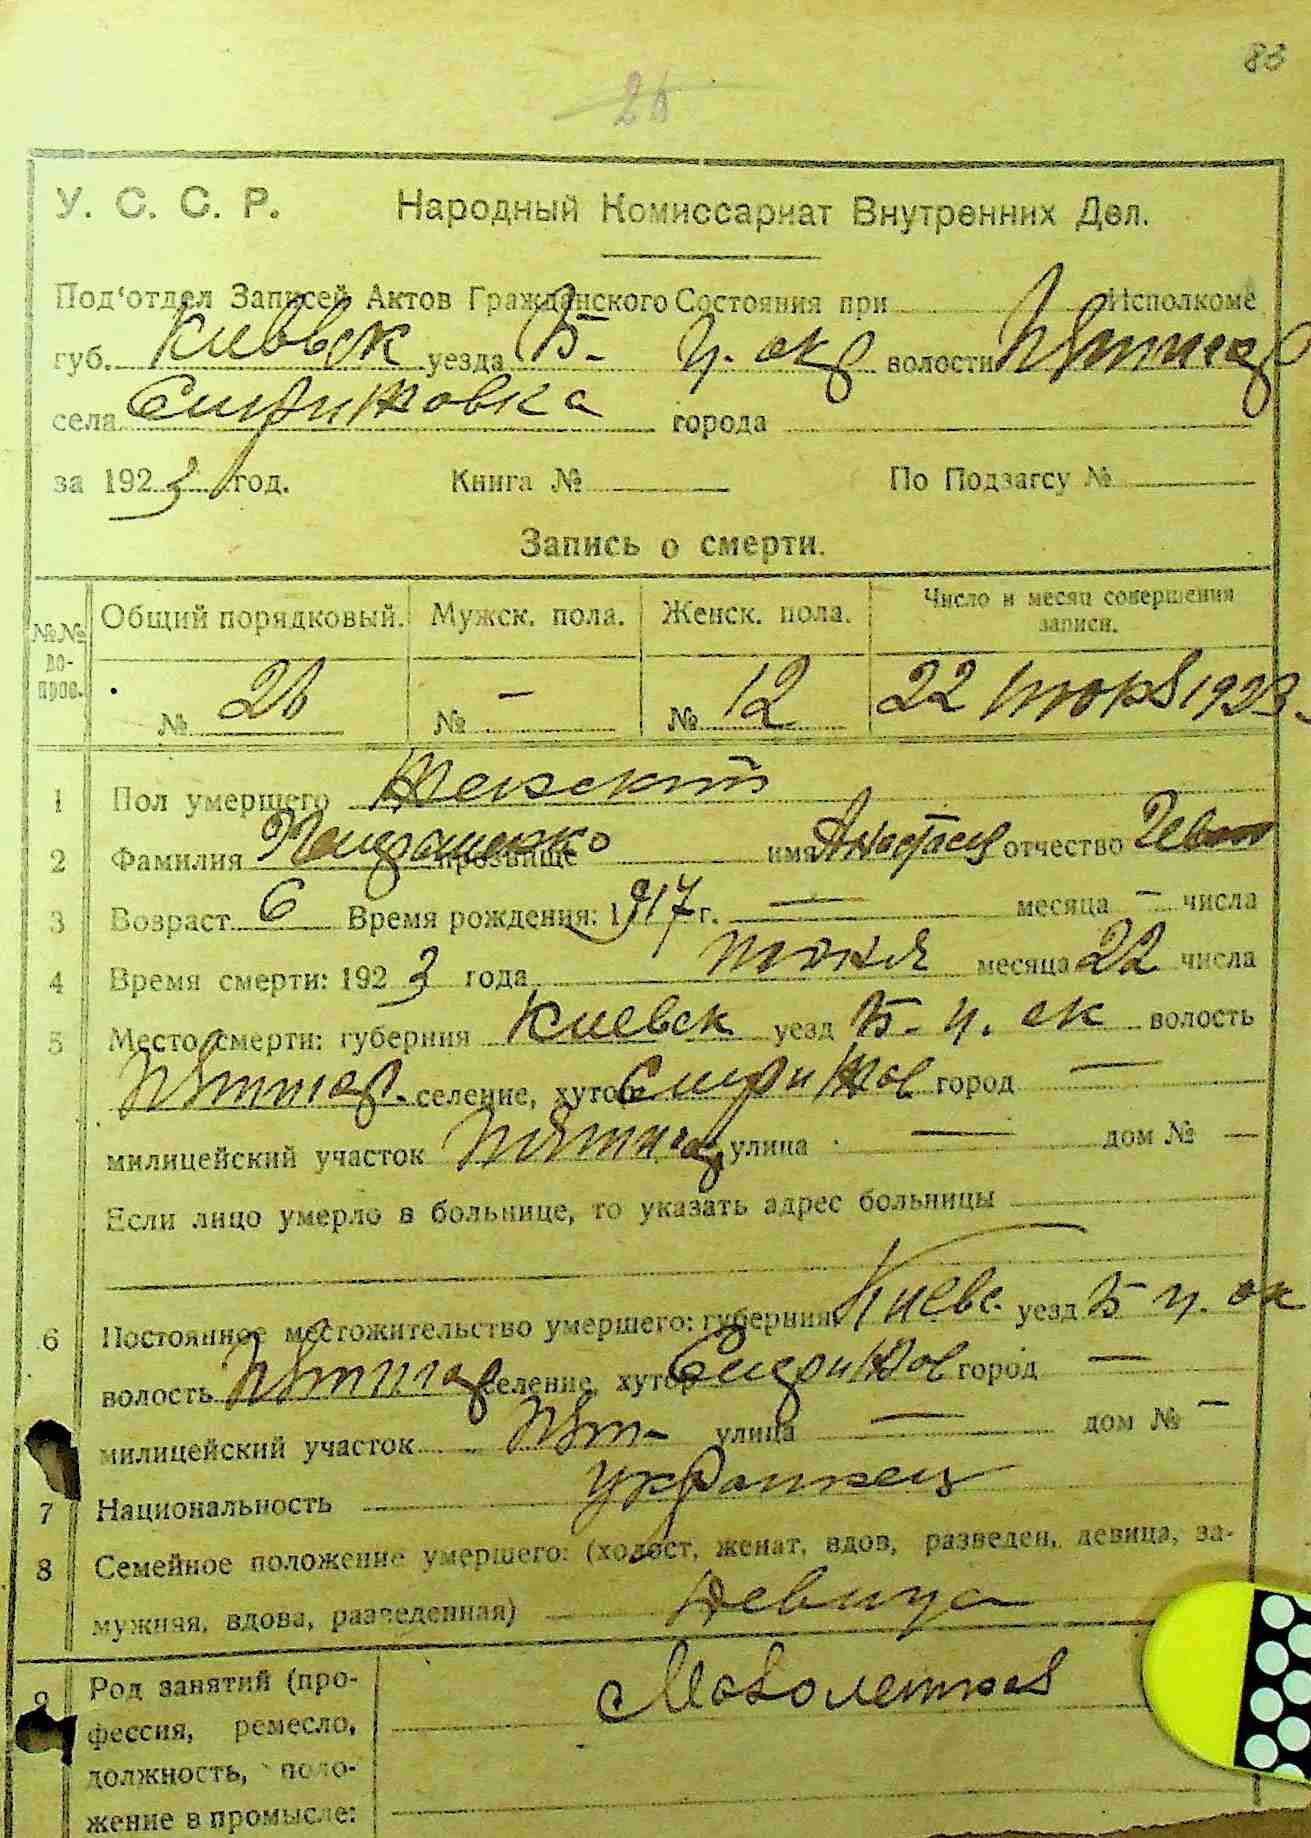 83
26
У. С. С. Р. Народный Комиссариат Внутренних Дел.
Под‘отдел Записей Актов Гражданского Состояния при Исполкоме
губ. Киевск уезда Б- ц. окр волости Пятигор
села Стрижовка города
за 1923 год. Книга № По Подзагсу №
Запись о смерти.
№№ вопрос. Общий порядковый. Мужск. пола. Женск. пола. Число и месяц совершения записи.
№ 26 № — № 12 22 июня 1923
1 Пол умершего Женский
2 Фамилия прозвище имя Анастасия отчество Иван
3 Возраст 6 Время рождения: 1917 г. — месяца — числа
4 Время смерти: 1923 года июня месяца 22 числа
5 Место смерти: губерния Киевск уезд Б. ц. ок волость
Пятигор. селение, хутор Стрижов город —
милицейский участок Пятигор улица — дом № —
Если лицо умерло в больнице, то указать адрес больницы
6 Постоянное местожительство умершего: губерния Киевс. уезд Б ц. ок
волость Пятигор селение, хутор Стрижов город —
милицейский участок Пят- улица — дом № —
7 Национальность украинец
8 Семейное положение умершего: (холост, женат, вдов, разведен, девица, за-
мужняя, вдова, разведенная) девица
9 Род занятий (про- Малолетняя
фессия, ремесло,
должность, поло-
жение в промысле: